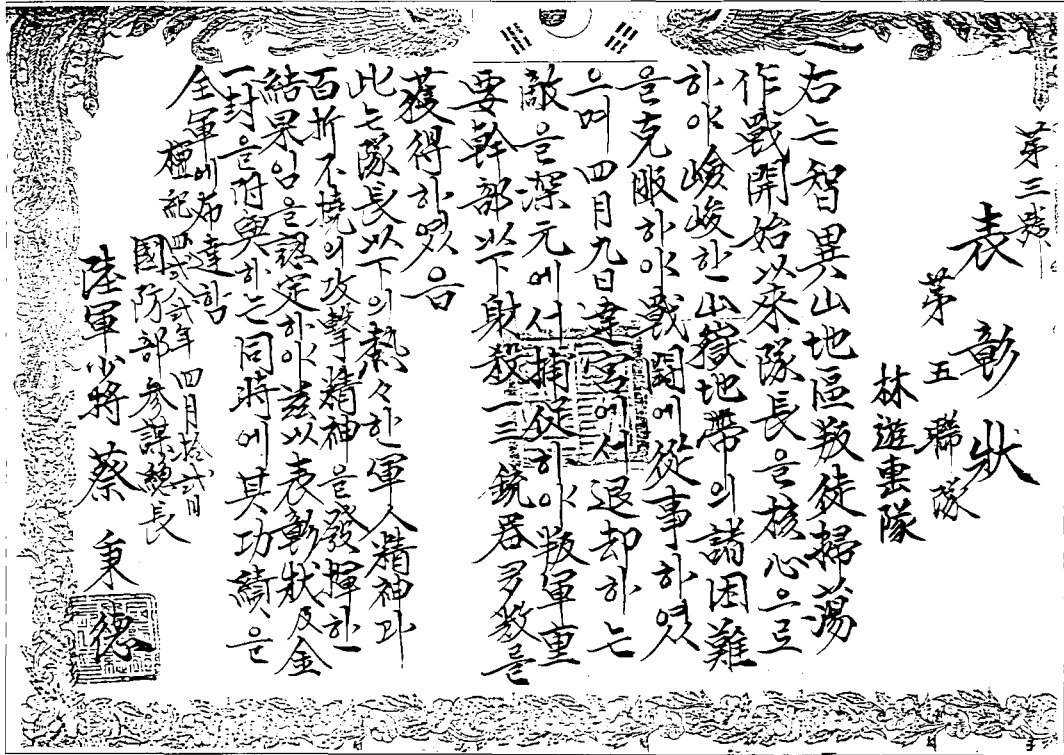 第三號
表彰狀
第五聯隊
林遊擊隊
右는智異山地區叛徒掃蕩
作戰開始以來隊長을核心으로
하야嶮峻한山嶽地帶의諸困難
을克服하야戰鬪에從事하였
으며四月九日達宮에서退却하는
敵을深元에서捕促하야叛軍重
要幹部以下射殺一三銃器多数를
獲得하였음
此는隊長以下의熱々한軍人精神과
百折不撓의攻擊精神을發揮한
結果임을認定하야玆以表彰狀及金
一封을附與하는同時에其功績을
全軍에布達함
檀紀四貳八貳年四月拾貳日
國防部參謀總長
陸軍少將蔡秉德